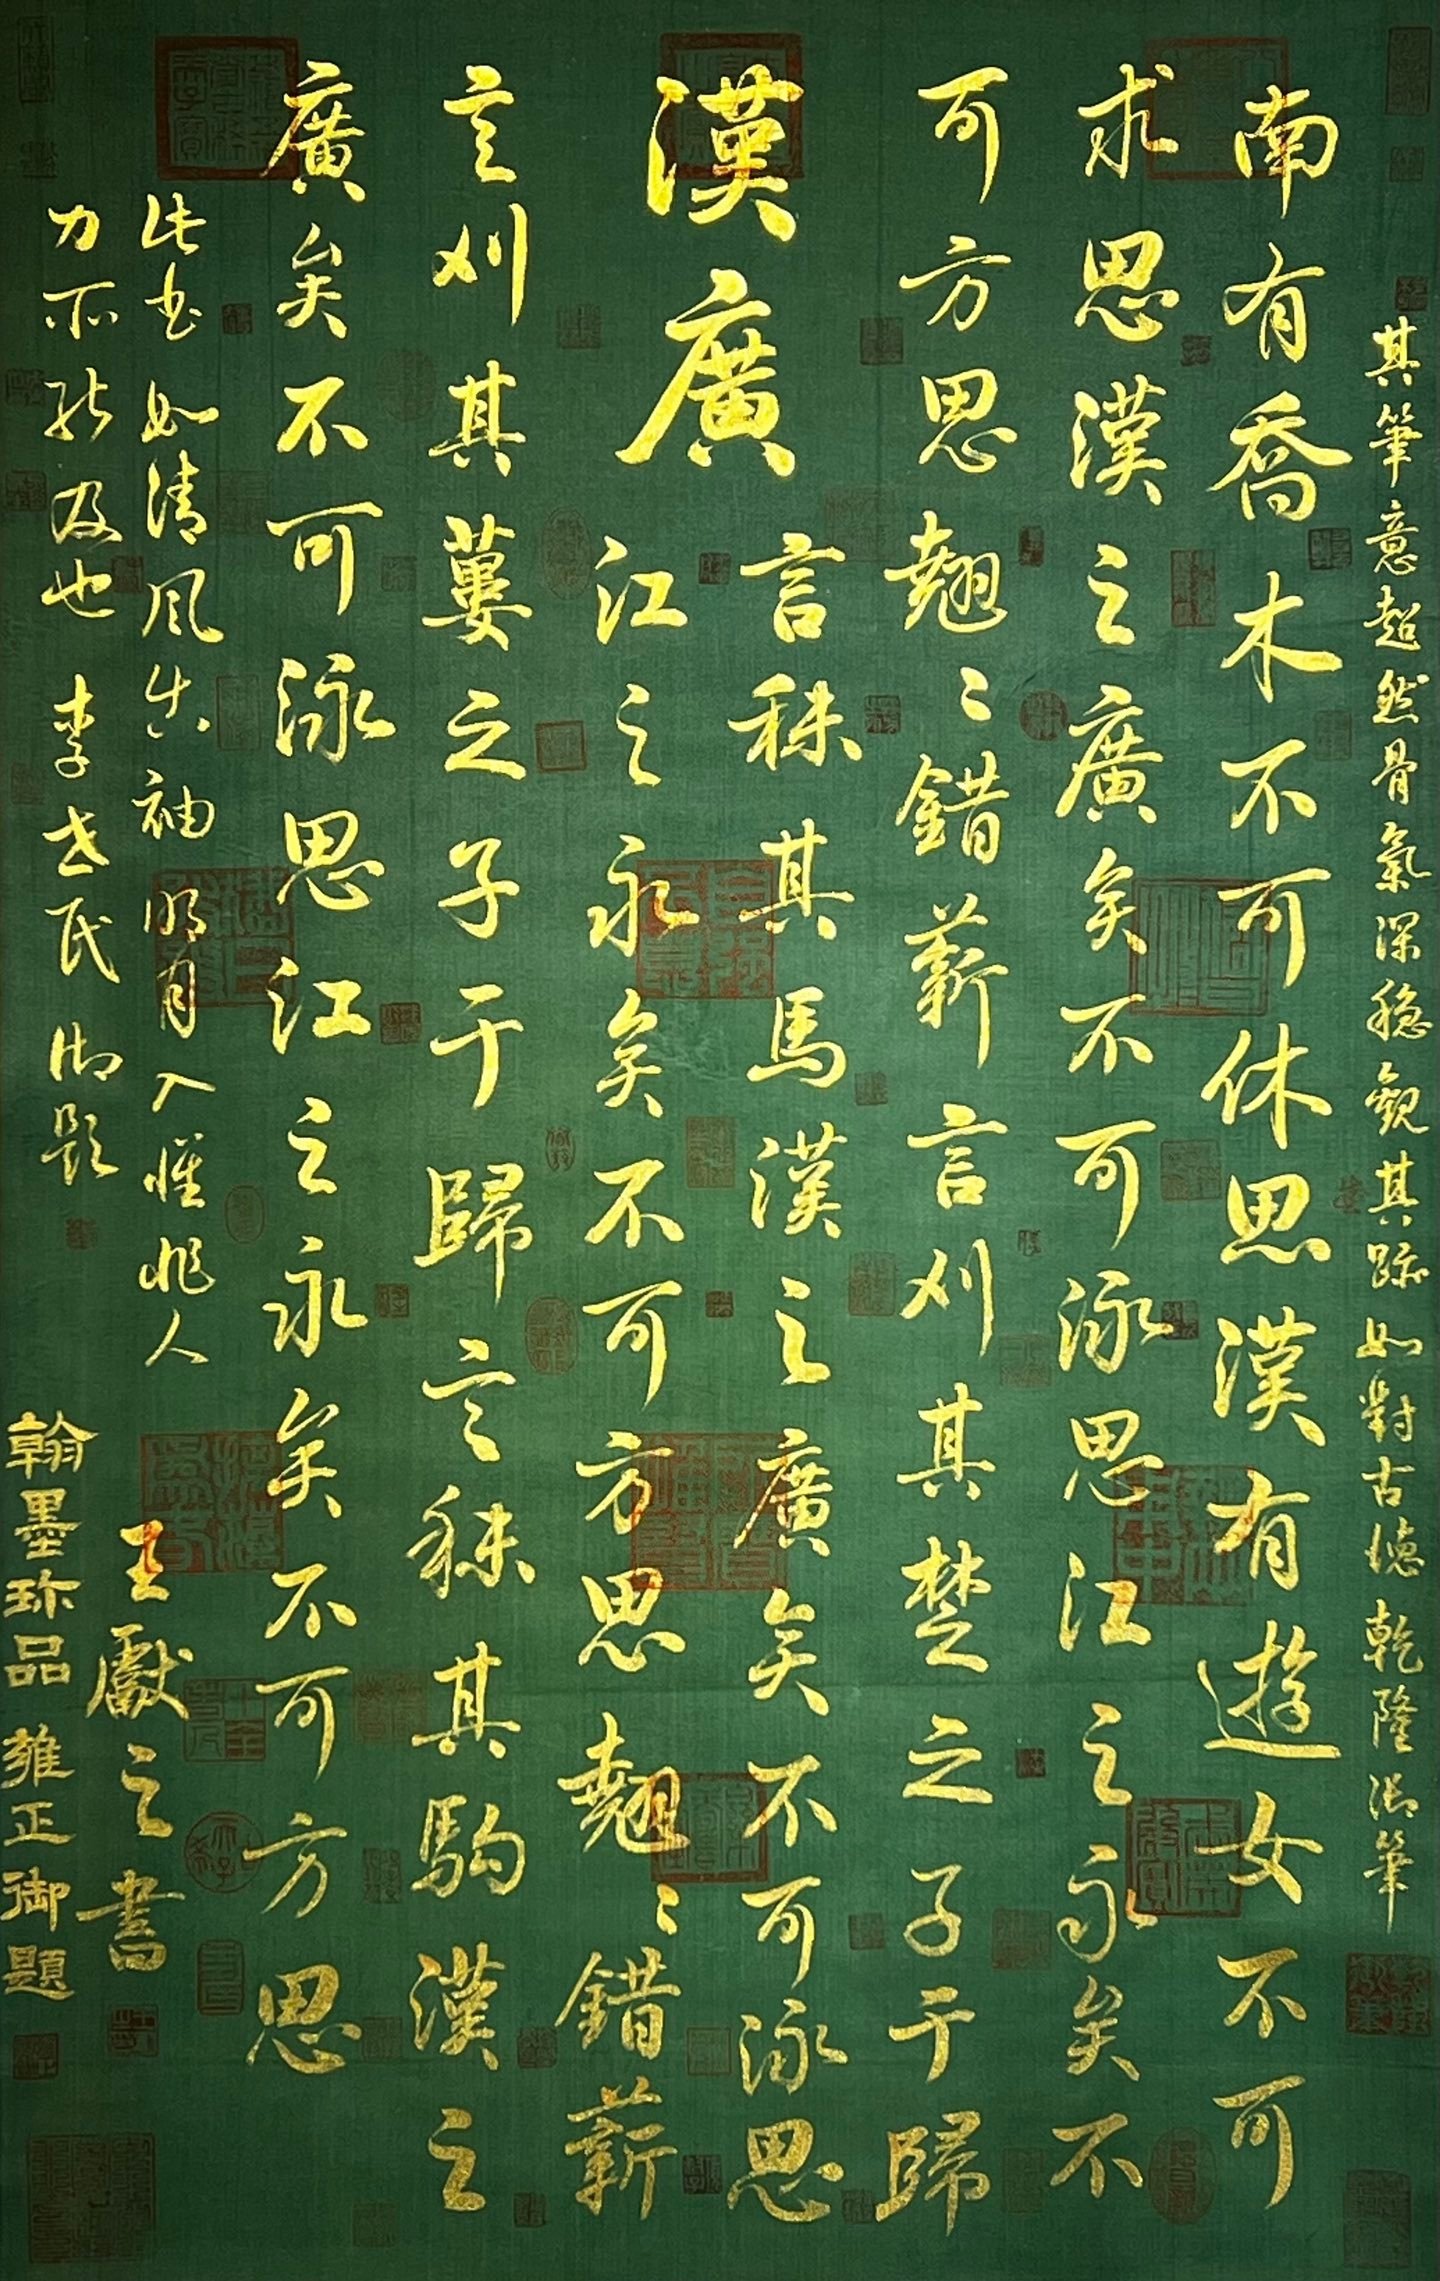 其筆意超然骨氣深穩觀其跡如對古德乾隆御筆
南有喬木不可休思漢有遊女不可
求思漢之廣矣不可泳思江之永矣不
可方思翹〻錯薪言刈其楚之子于歸
漢廣
言秣其馬漢之廣矣不可泳思
江之永矣不可方思翹〻錯薪
言刈其蔞之子于歸言秣其駒漢之
廣矣不可泳思江之永矣不可方思
此書如清風出袖明月入懷非人
力所能及也 李世民 御題
王獻之書
翰墨珍品 雍正御題